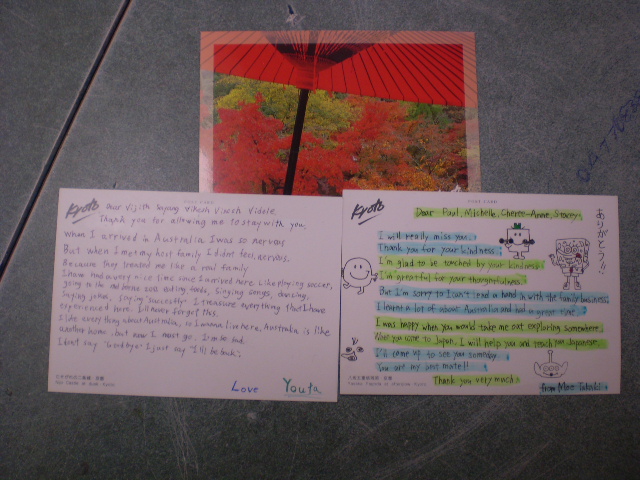 Kyoto
POST CARD
Dear Vijith Jayang Vikash Videle
Thank you for allowing me to stay with you,
When I arrived in Australia I was so nervous
But when I met my host family I didnt feel nervous.
Because they treated me like a real family
I have had a very nice time since I arrived here. Like playing soccer,
going to the zoo, eating foods, Singing songs, dancing,
Saying jokes, saying "succefly" I treasure everything that I have
experienced here. I'll never forget this.
I like everything about Australia, so I wanna live here. Australia is like
another home. but now I must go. I'm so sad.
I dont say "Goodbye" I just say "I'll be back".
Love Youta
Kyoto
POST CARD
Dear Paul, Michelle, Cheree-Anne, Stacey
ありがとう!!
I will really miss you.
Thank you for your kindness.
I'm glad to be touched by your kindness
I'm greatful for your thoughtfulness.
But I'm sorry to I can't lend a hand in with the family business.
I learnt a lot about Australia and had a great time.
I was happy when you would take me out exploring somewhere.
When you come to Japan. I will help you and teach you Japanese.
I'll come up to see you someday.
You are my best mate!!
Thank you very much.
from Moe